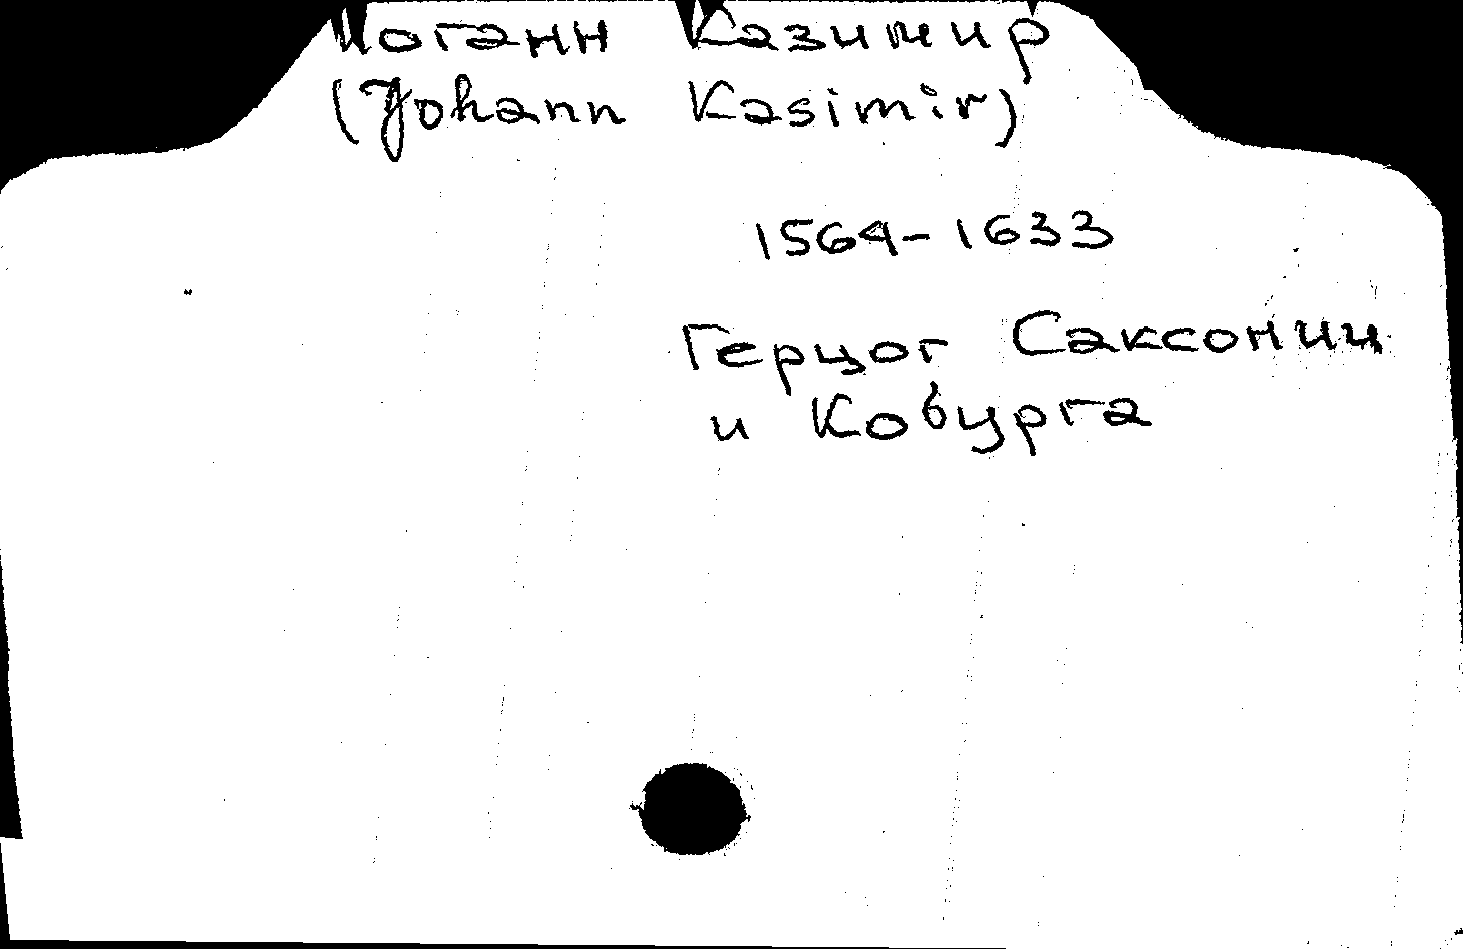 Иоганн Казимир
(Johann Kasimir)
1564-1633
Герцог Саксонии
и Кобурга